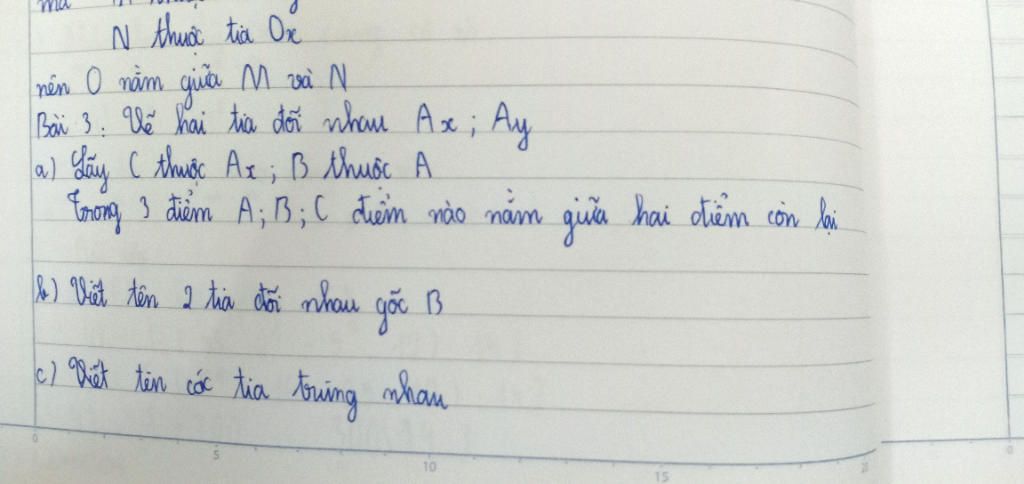 N thuộc tia Ox
nên O nằm giữa M và N
Bài 3: Vẽ hai tia đối nhau Ax; Ay
a) Lấy C thuộc Ax; B thuộc A
Trong 3 điểm A; B; C điểm nào nằm giữa hai điểm còn lại
b) Viết tên 2 tia đối nhau gốc B
c) Viết tên các tia trùng nhau
0 5 10 15